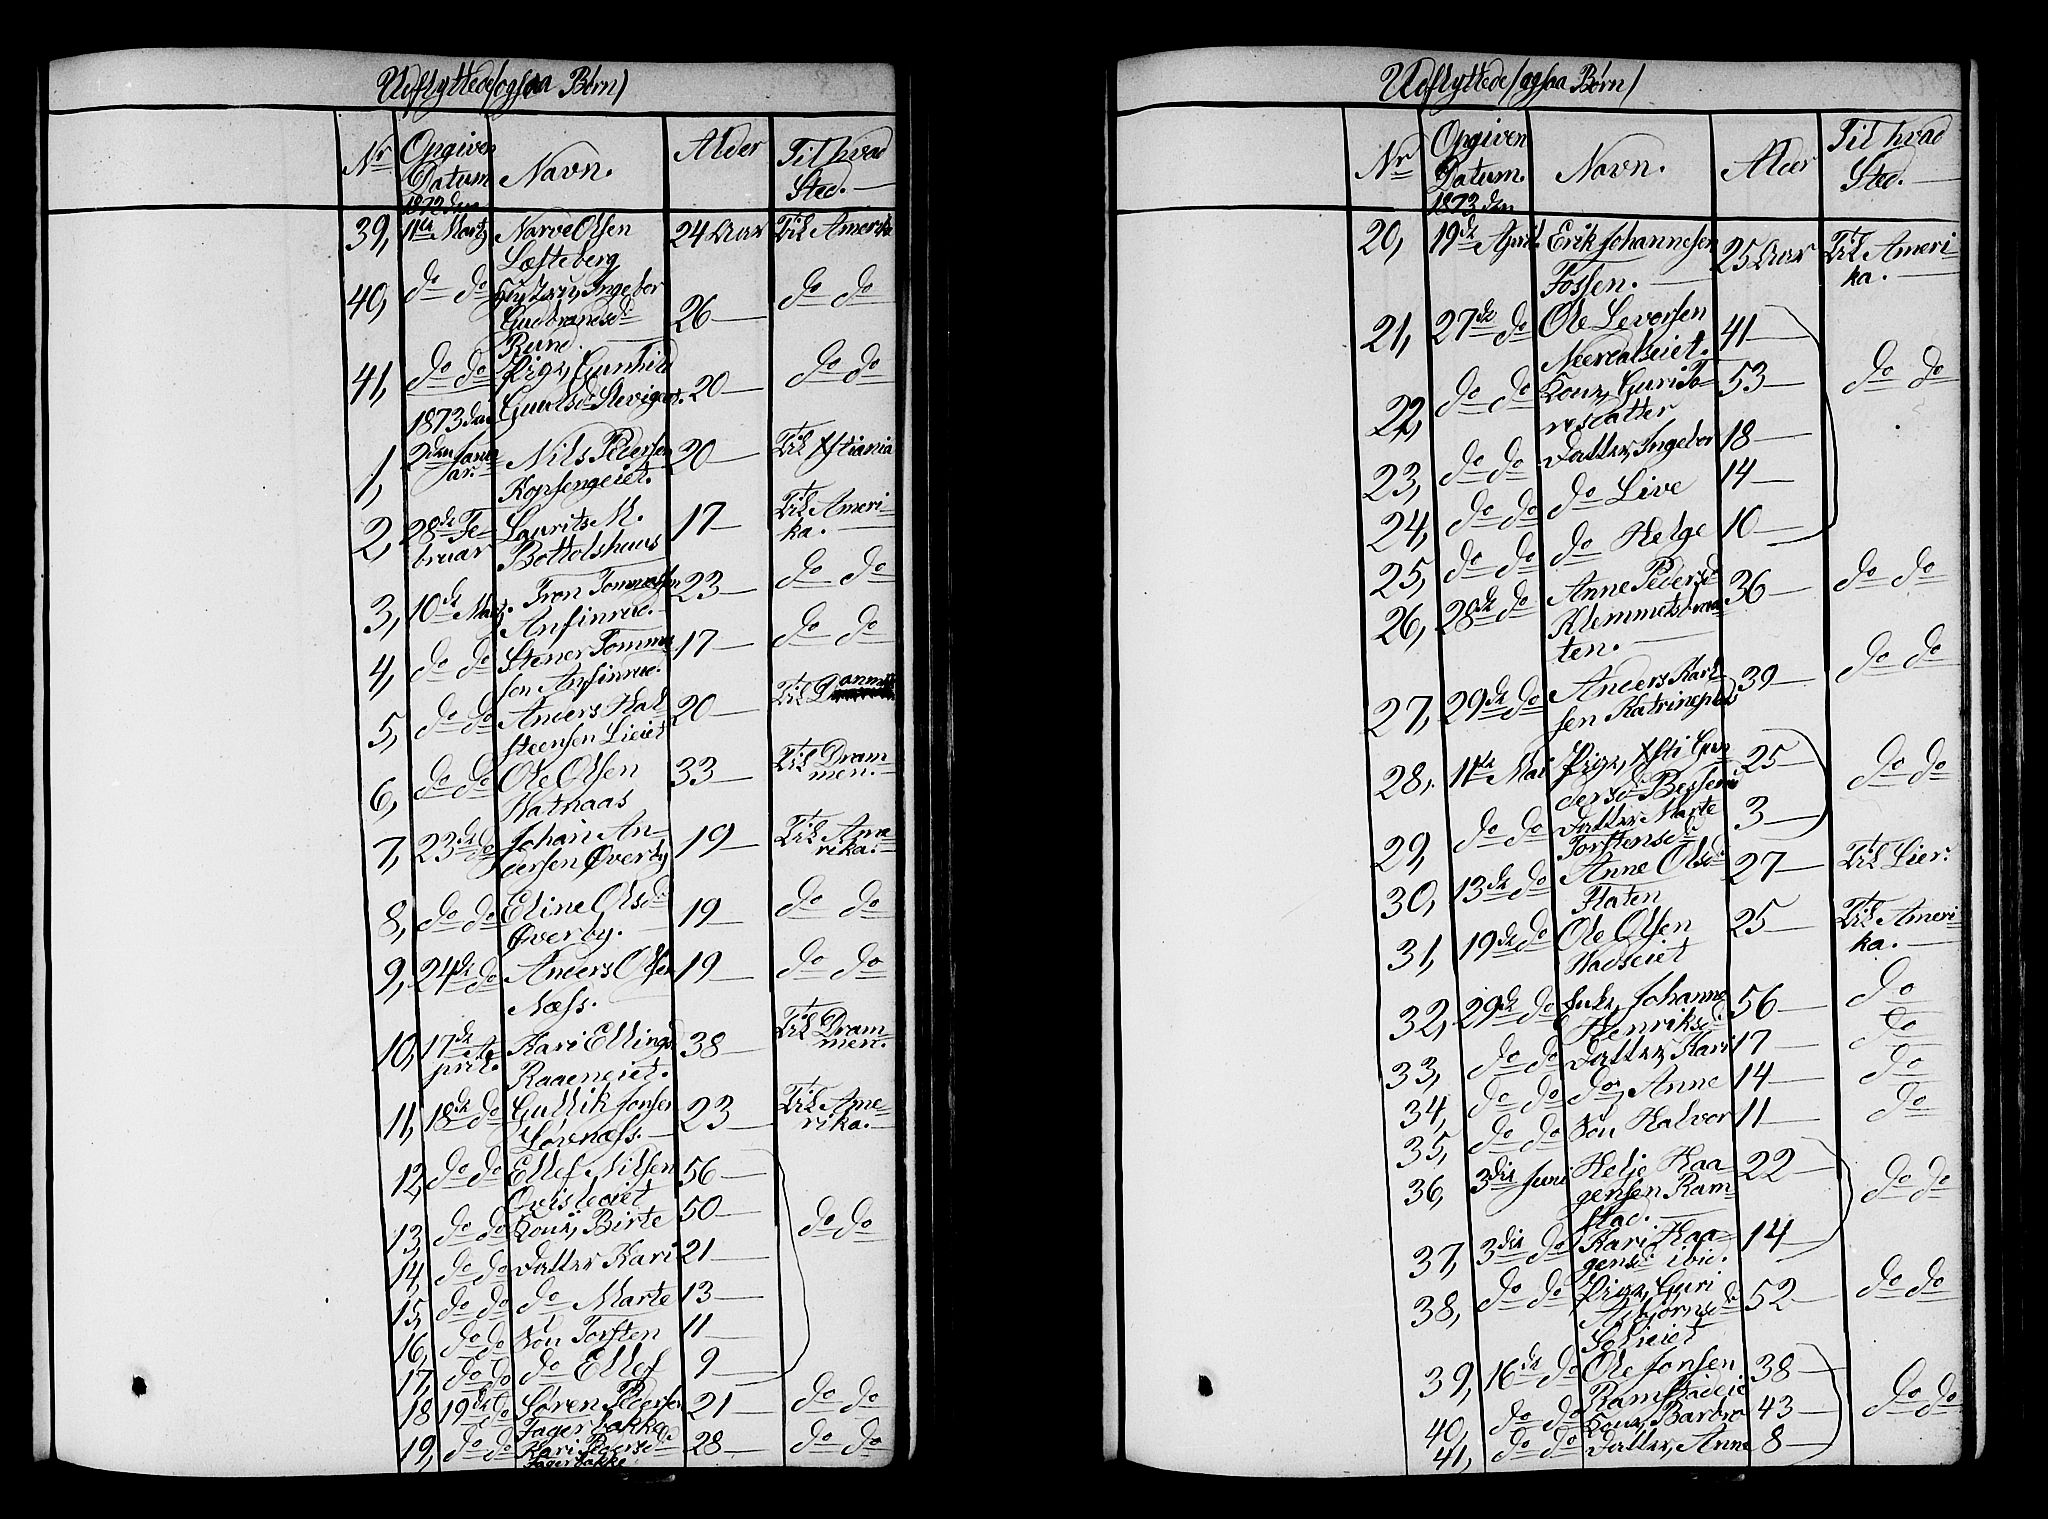 Udflyttede (ogsaa Børn)
Nr Opgiven Datum 1872 den Navn. Alder Til hvad Sted.
39, 11te Marts Narve Olsen 24 Aar Til Amerika
Læsteberg
40, do do Ingebor 26 do do
Gudbrandsd.
Rund.
41, do do Pige, Gunhild 20 do do
1873 den
1, 2den Januar Nils Pedersen 20 Til Xtiania
Kopsengeiet.
2, 28de Februar Laurits M. 17 Til Amerika.
Bottolshuus
3, 10de Marts Tron Tommessen 23 do do
Anfinrud.
4, do do Stener Tommessen 17 do do
Anfinrud.
5, do do Anders Halsteensen Lieiet 20
6, do do Ole Olsen 33 Til Drammen.
Natraas
7, 23de do Johan Andersen Øverby 19 Til Amerika.
8, do do Eline Olsd. 19 do do
Øverby.
9, 24de do Anders Olsen 19 do do
Næss.
10, 17de April. Kari Ellingsd 38 Til Drammen.
Raaeneiet.
11, 18de do Gullik Jonsen 23 Til Amerika.
Løvnæss.
12, do do Ellef Nilsen 56
13, do do Kone, Birte 50 do do
14, do do Datter Kari 21
15, do do do Marte 13
16, do do Søn Torsten 11
17, do do do Ellef 9
18 19de do Søren Pedersen 21 do do
Fagerbakke
19, do do Kari Pedersd 28 do do
Fagerbakke
Udflyttede (ogsaa Børn)
Nr Opgiven Datum. 1873 den Navn. Alder Til hvad Sted.
20, 19de April Erik Johannesen 25 Aar Til Amerika.
Fossen.
21, 27de do Ole Leversen 41
22, do do Kone, Guri To- 53 do do
resdatter
23, do do Datter, Ingebor 18
24, do do do Live 14
25, do do do Helge 10
26, 28de do Anne Pedersd 36 do do
Klemmetsbraaten.
27, 29de do Anders Karlsen Katrineplads 39 do do
28, 11te Mai Pige, Xsti Gundersd. 25 do do
29, do do Datter Marte 3
Torstensd
30, 13de do Anne Olsd. 27 Til Lier.
Flaten
31, 19de do Ole Olsen 25 Til Amerika.
Hadseiet
32, 29de do Enke, Johanne 56 do
Henriksd
33, do do Datter Kari 17 do
34, do do do, Anne 14 do
35, do do Søn Halvor 11 do
36, 3die Juni Helje Haagensen Ramstad. 22 do do
37, 3die do Kari Haagensd ibid. 14
38, do do Pige, Guri 52 do do
Asbjørnsd
Solieiet
39, 16de do Ole Jonsen 38
Ramstadeie
40, do do Kone, Barbro 43 do do
41, do do Datter, Anne 8